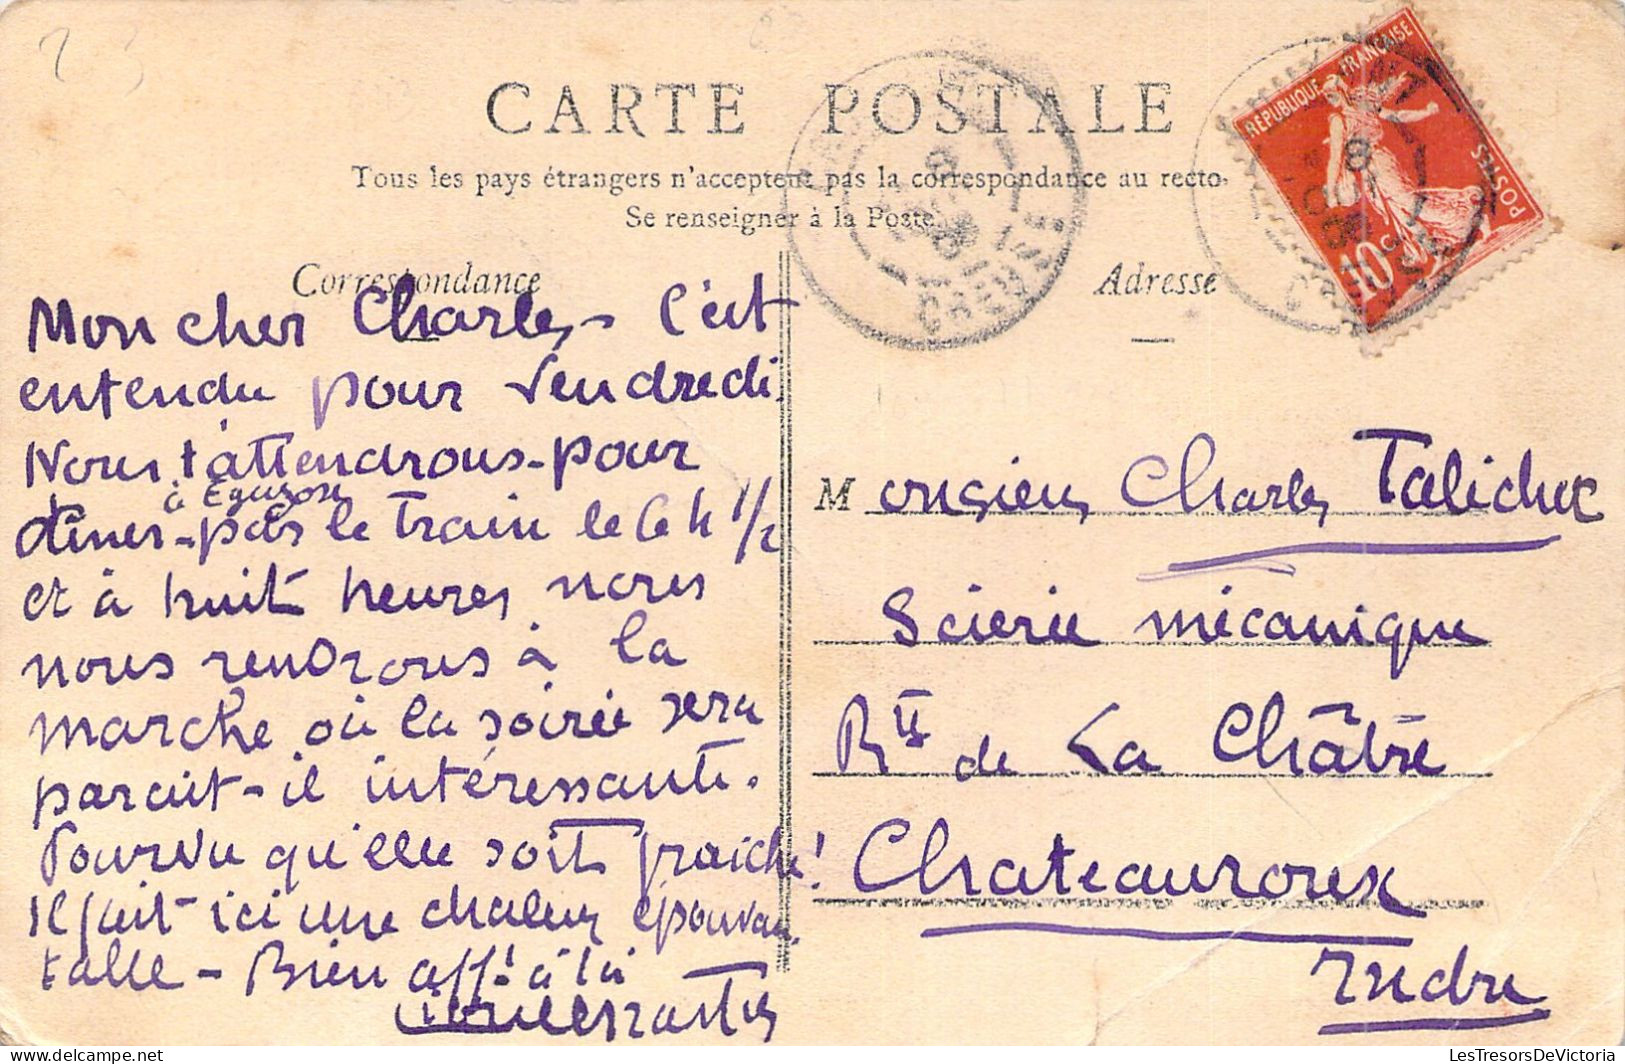 CARTE POSTALE
Tous les pays étrangers n'acceptent pas la correspondance au recto.
Se renseigner à la Poste.
Correspondance
Mon cher Charles - C'est
entendu pour Vendredi.
Nous t'attendrons - pour
à Eguzon
dîner - pas le train de 6 h 1/2
et à huit heures nous
nous rendrons à la
marche où la soirée sera
parait-il intéressante.
Pourvu qu'elle soit fraiche!
Il fait ici une chaleur épouvan
table - Bien afft à toi
Adresse
Monsieur Charles Talichet
Scierie mécanique
Rte de La Châtre
Chateauroux
Indre
RÉPUBLIQUE FRANÇAISE
POSTES
10c
8
CREUSE
8
CREUSE
LesTresorsDeVictoria